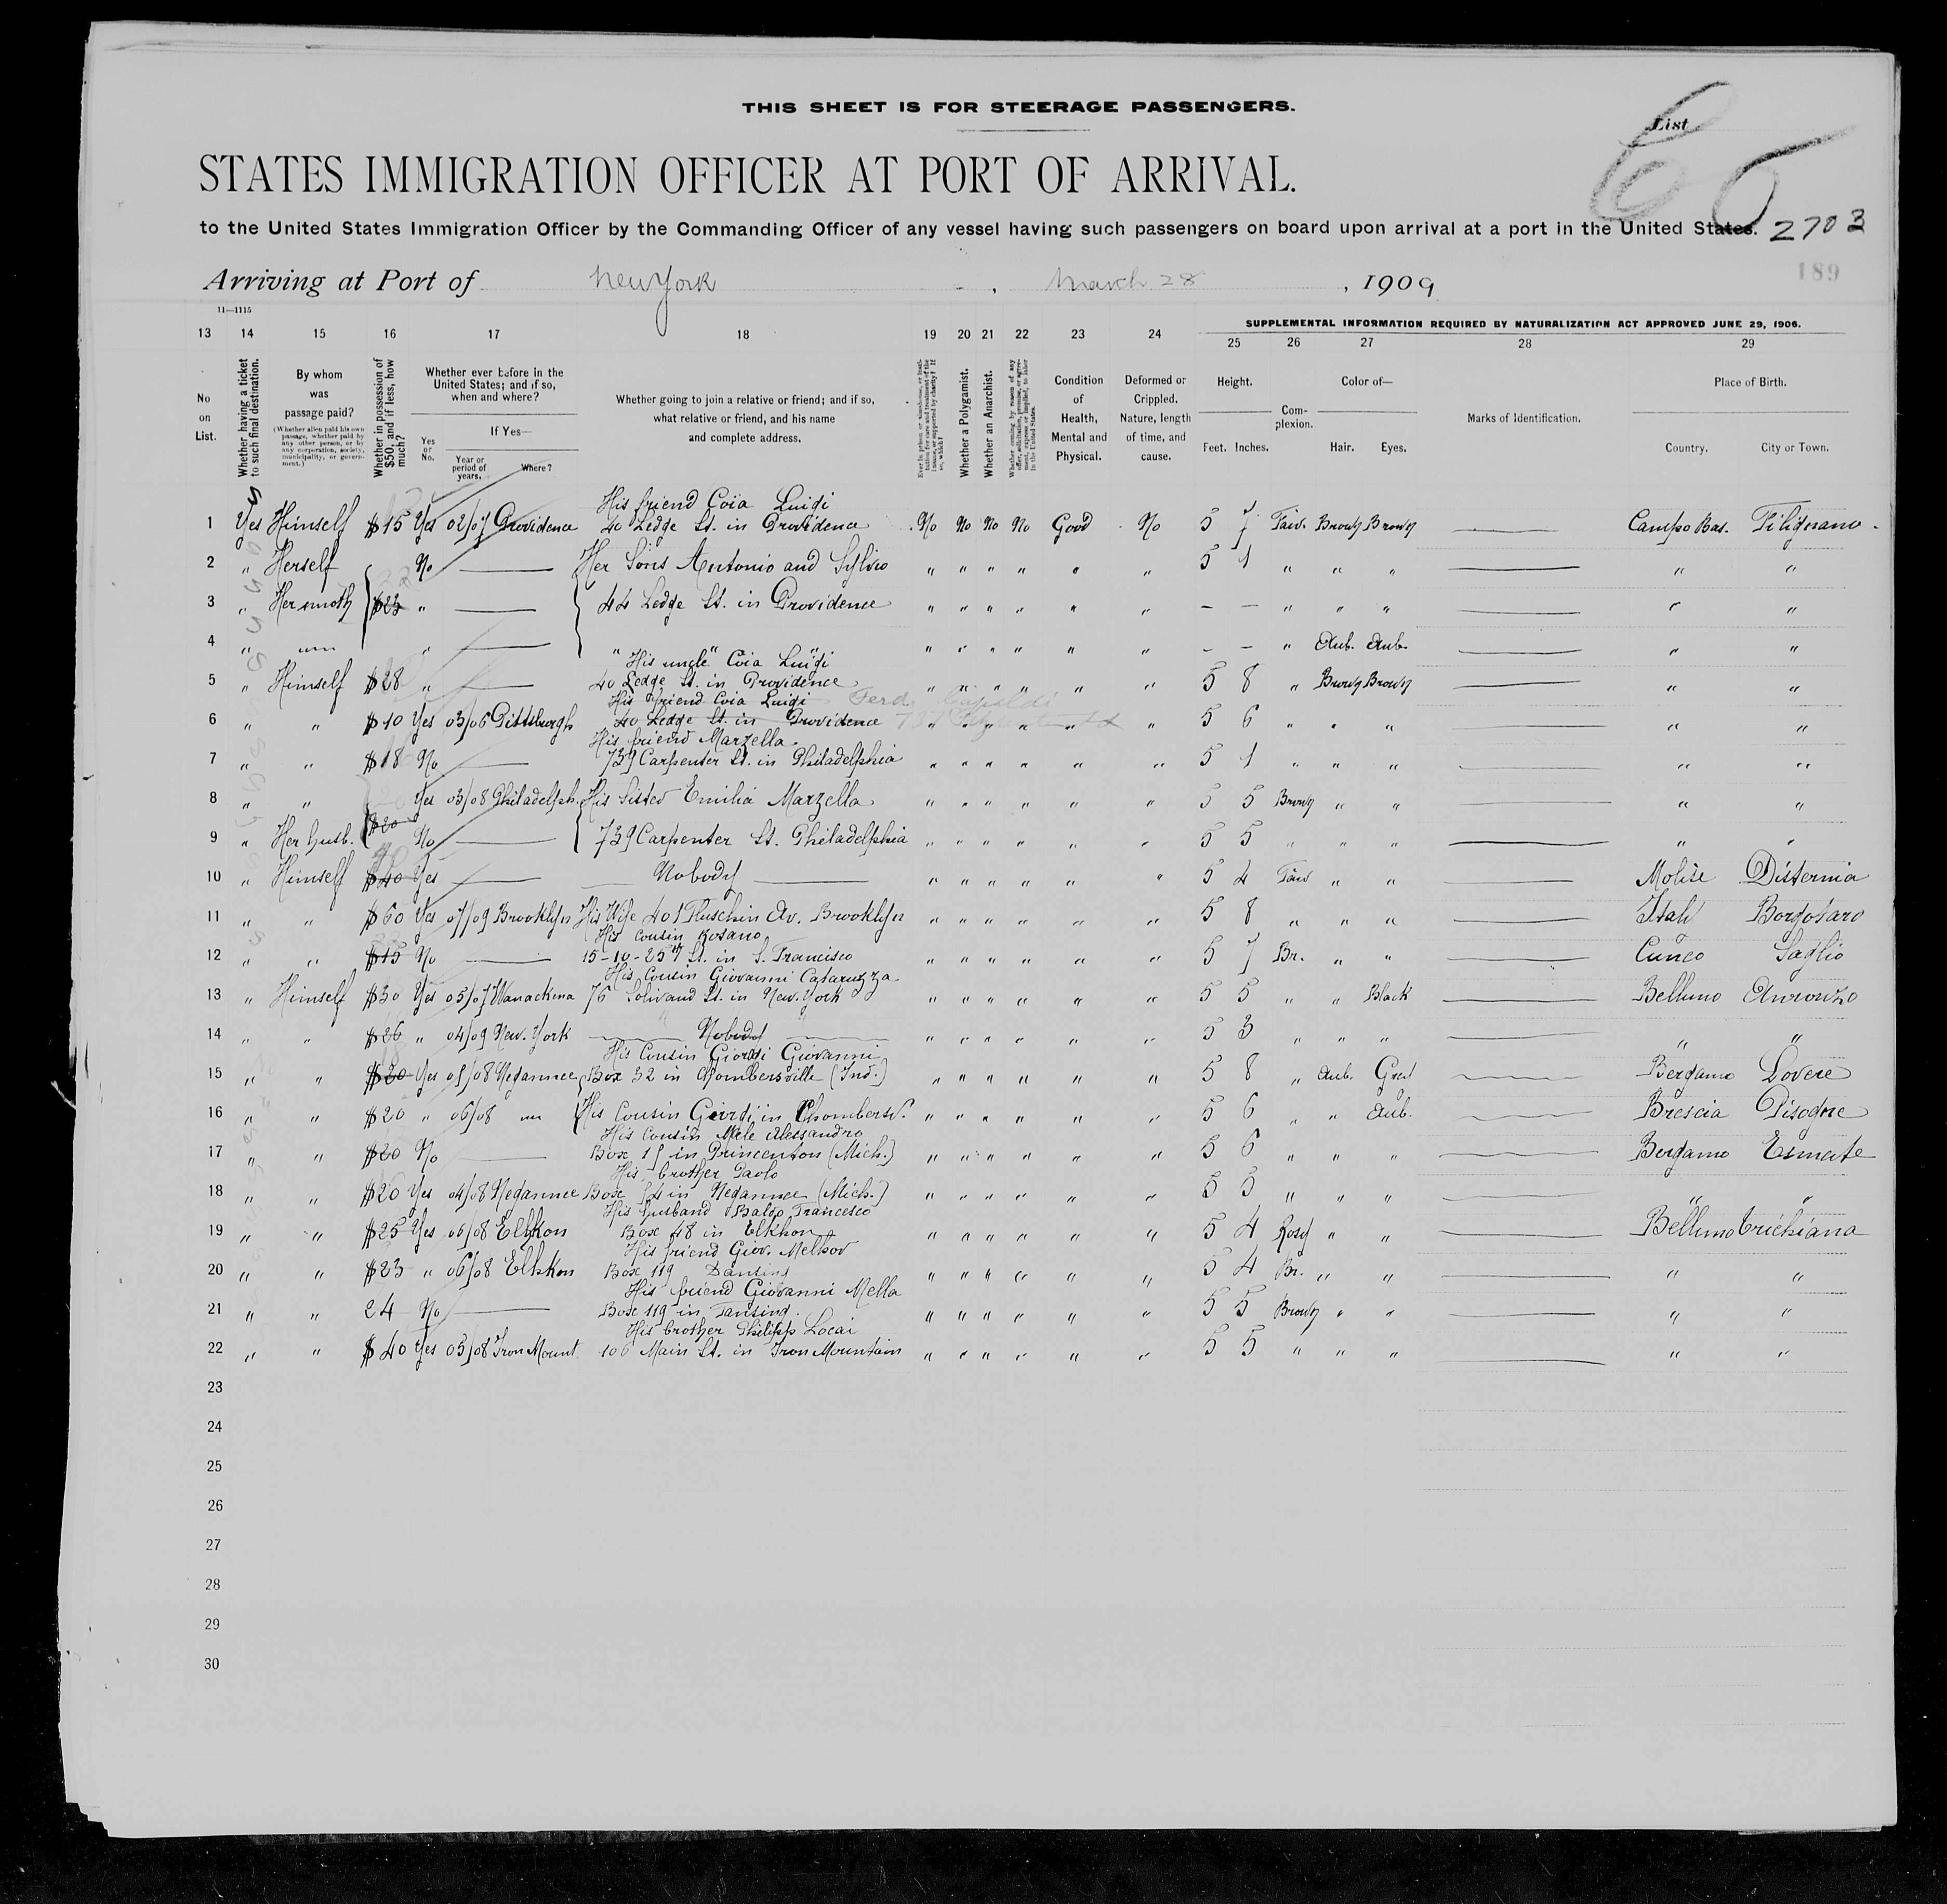 THIS SHEET IS FOR STEERAGE PASSENGERS.
List
STATES IMMIGRATION OFFICER AT PORT OF ARRIVAL.
to the United States Immigration Officer by the Commanding Officer of any vessel having such passengers on board upon arrival at a port in the United States. 2703
189
Arriving at Port of New York , March 28 , 1909
11—1115
SUPPLEMENTAL INFORMATION REQUIRED BY NATURALIZATION ACT APPROVED JUNE 29, 1906.
13 14 15 16 17 18 19 20 21 22 23 24 25 26 27 28 29
No on List.
Whether having a ticket to such final destination.
By whom was passage paid?
(Whether alien paid his own passage, whether paid by any other person, or by any corporation, society, municipality, or government.)
Whether in possession of $50, and if less, how much?
Whether ever before in the United States; and if so, when and where?
Yes or No.
If Yes—
Year or period of years.
Where?
Whether going to join a relative or friend; and if so, what relative or friend, and his name and complete address.
Whether a Polygamist.
Whether an Anarchist.
Condition of Health, Mental and Physical.
Deformed or Crippled. Nature, length of time, and cause.
Height.
Feet. Inches.
Complexion.
Color of—
Hair. Eyes.
Marks of Identification.
Place of Birth.
Country. City or Town.
His friend Coia Luigi
1 Yes Himself $15 Yes 02/07 Providence 40 Ledge St. in Providence No No No No Good No 5 7 Fair Brown Brown — Campo Bas. Filignano
2 " Herself No — Her Sons Antonio and Sylvio " " " " " " 5 1 " " " — " "
3 " Her moth $23 " — 44 Ledge St. in Providence " " " " " " — — " " " — " "
4 " " " — " " " " " " " " — — " Aub. Aub. — " "
His uncle Coia Luigi
5 " Himself $28 " — 40 Ledge St. in Providence " " " " " " 5 8 " Brown Brown — " "
His friend Coia Luigi
6 " " $10 Yes 03/06 Pittsburgh 40 Ledge St. in Providence " " " " " " 5 6 " " " — " "
His friend Marzella
7 " " $18 No — 739 Carpenter St. in Philadelphia " " " " " " 5 1 " " " — " "
8 " " Yes 03/08 Philadelph. His Sister Emilia Marzella " " " " " " 5 5 Brown " " — " "
9 " Her husb. $20 No — 739 Carpenter St. Philadelphia " " " " " " 5 5 " " " — " "
10 " Himself $40 Yes — Nobody — " " " " " " 5 4 Fair " " — Molise Disternia
11 " " $60 Yes 07/09 Brooklyn His Wife 401 Fluschin Av. Brooklyn " " " " " " 5 8 " " " — Itali Borgotaro
His cousin Rosano
12 " " $15 No — 15-10-25th St. in S. Francisco " " " " " " 5 7 Br. " " — Cuneo Saglio
His Cousin Giovanni Cataruzza
13 " Himself $30 Yes 05/07 Wanackena 76 Solivand St. in New-York " " " " " " 5 5 " " Black — Belluno Auronzo
14 " " $26 " 04/09 New-York — Nobody — " " " " " " 5 3 " " " — " "
His Cousin Giordi Giovanni
15 " " $20 Yes 01/08 Negaunee Box 32 in Chombersville (Ind.) " " " " " " 5 8 " Aub. Grey — Bergamo Lovere
16 " " $20 " 06/08 " His Cousin Giordi in Chombersv. " " " " " " 5 6 " " Aub. — Brescia Pisogne
His Cousin Mele Alessandro
17 " " $20 No — Box 11 in Princenton (Mich.) " " " " " " 5 6 " " " — Bergamo Esmate
His brother Paolo
18 " " $20 Yes 04/08 Negaunee Box 54 in Negaunee (Mich.) " " " " " " 5 5 " " " — " "
His husband Baldo Francesco
19 " " $25 Yes 06/08 Elkhon Box 48 in Elkhon " " " " " " 5 4 Rosy " " — Belluno Trichiana
His friend Giov. Melhov
20 " " $23 " 06/08 Elkhon Box 119 Dansind " " " " " " 5 4 Br. " " — " "
His friend Giovanni Mella
21 " " 24 No — Box 119 in Tansind. " " " " " " 5 5 Brown " " — " "
His brother Philipp Locai
22 " " $40 Yes 03/08 Iron Mount. 106 Main St. in Iron Mountain " " " " " " 5 5 " " " — " "
23
24
25
26
27
28
29
30